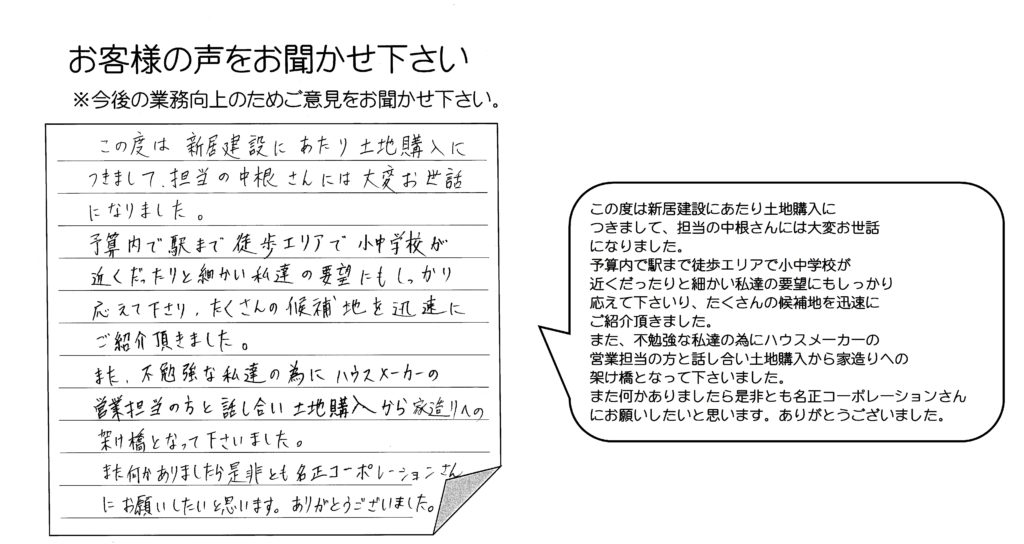 お客様の声をお聞かせ下さい
※今後の業務向上のためご意見をお聞かせ下さい。
この度は 新居建設に あたり 土地購入に
つきまして、担当の中根さんには大変お世話
になりました。
予算内で駅まで徒歩エリアで小中学校が
近くだったりと細かい私達の要望にもしっかり
応えて下さり、たくさんの候補地を迅速に
ご紹介頂きました。
また、不勉強な私達の為に ハウスメーカーの
営業担当の方と話し合い 土地購入から家造りへの
架け橋となって下さいました。
また何かありましたら是非とも名正コーポレーションさん
にお願いしたいと思います。ありがとうございました。
この度は新居建設にあたり土地購入に
つきまして、担当の中根さんには大変お世話
になりました。
予算内で駅まで徒歩エリアで小中学校が
近くだったりと細かい私達の要望にもしっかり
応えて下さいり、たくさんの候補地を迅速に
ご紹介頂きました。
また、不勉強な私達の為にハウスメーカーの
営業担当の方と話し合い土地購入から家造りへの
架け橋となって下さいました。
また何かありましたら是非とも名正コーポレーションさん
にお願いしたいと思います。ありがとうございました。